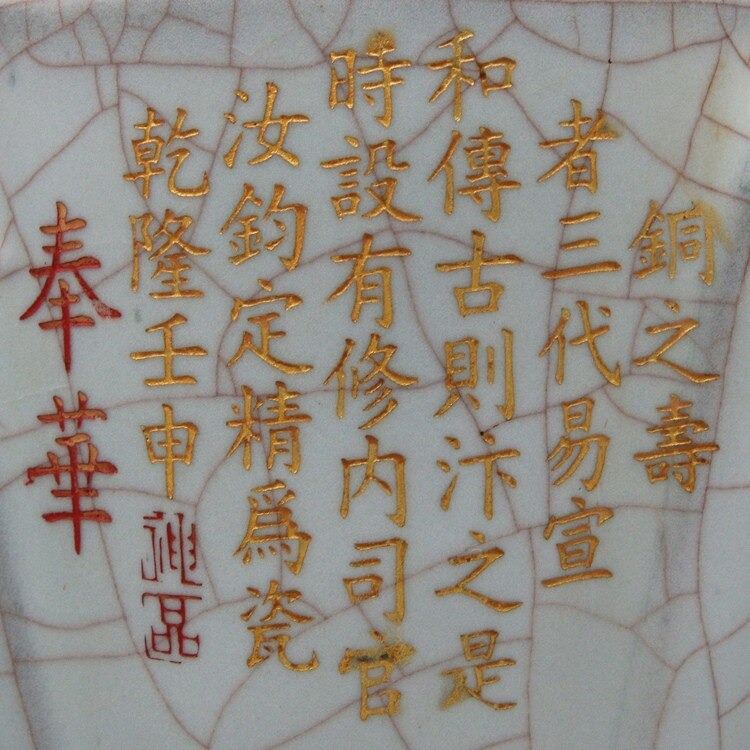 銅之壽
者三代易宣
和傳古則汴之是
時設有修内司官
汝鈞定精爲瓷
乾隆壬申
奉華